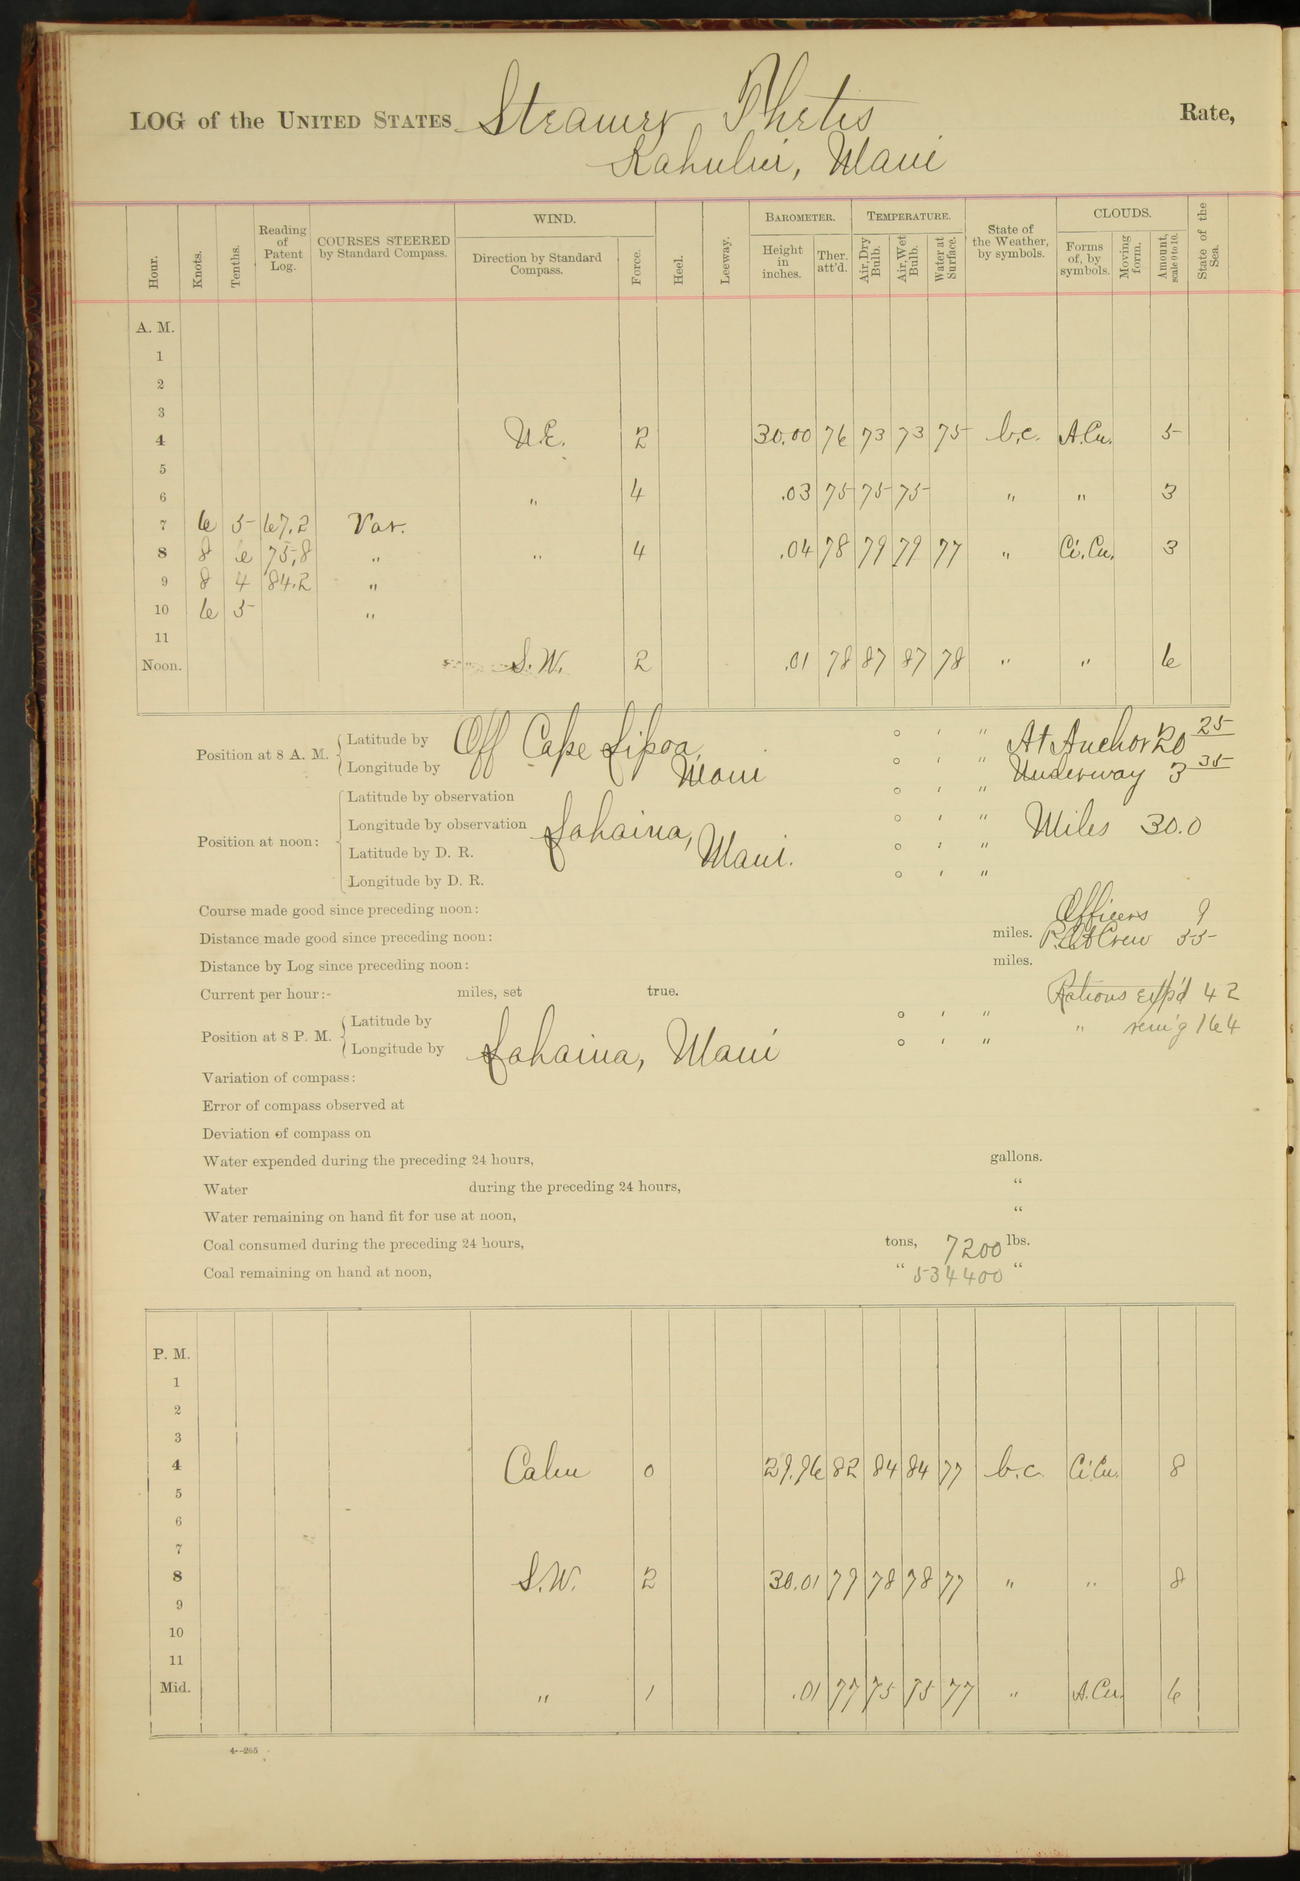 LOG of the UNITED STATES Steamer Thetis Rate,
Kahului, Maui
Hour. Knots. Tenths. Reading of Patent Log. COURSES STEERED by Standard Compass. WIND. Direction by Standard Compass. Force. Heel. Leeway. BAROMETER. Height in inches. Ther. att'd. TEMPERATURE. Air, Dry Bulb. Air, Wet Bulb. Water at Surface. State of the Weather, by symbols. CLOUDS. Forms of, by symbols. Moving form. Amount, scale 0 to 10. State of the Sea.
A. M.
1
2
3
4 N.E. 2 30.00 76 73 73 75 b.c. A.Cu. 5
5
6 " 4 .03 75 75 75 " " 3
7 6 5 67.2 Var.
8 8 6 75.8 " " 4 .04 78 79 79 77 " Ci.Cu. 3
9 8 4 84.2 "
10 6 5 "
11
Noon. S.W. 2 .01 78 87 87 78 " " 6
Position at 8 A. M. Latitude by Off Cape Lipoa, ° ' " At Anchor 20 25
Longitude by Maui ° ' " Underway 3 35
Position at noon: Latitude by observation ° ' "
Longitude by observation Lahaina, ° ' " Miles 30.0
Latitude by D. R. Maui. ° ' "
Longitude by D. R. ° ' "
Course made good since preceding noon: Officers 9
Distance made good since preceding noon: miles. Crew 55
Distance by Log since preceding noon: miles.
Current per hour:- miles, set true. Rations exp'd 42
Position at 8 P. M. Latitude by ° ' " " rem'g 164
Longitude by Lahaina, Maui ° ' "
Variation of compass:
Error of compass observed at
Deviation of compass on
Water expended during the preceding 24 hours, gallons.
Water during the preceding 24 hours, "
Water remaining on hand fit for use at noon, "
Coal consumed during the preceding 24 hours, tons, 7200 lbs.
Coal remaining on hand at noon, " 534400 "
P. M.
1
2
3
4 Calm 0 29.96 82 84 84 77 b.c. Ci.Cu. 8
5
6
7
8 S.W. 2 30.01 79 78 78 77 " " 8
9
10
11
Mid. " 1 .01 77 75 75 77 " A.Cu. 6
4--265